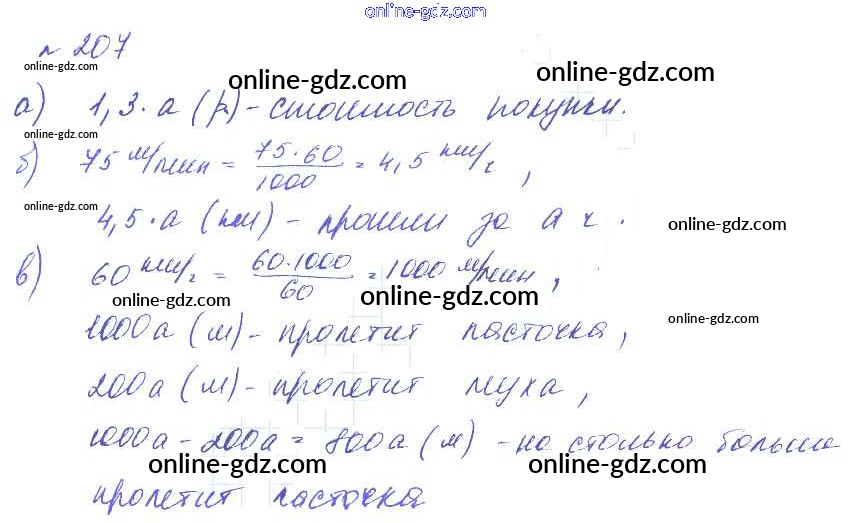 online-gdz.com
№ 207
online-gdz.com
online-gdz.com online-gdz.com
а) 1,3·а (р) - стоимость покупки.
online-gdz.com
б) 75 м/мин = 75·60/1000 = 4,5 км/ч,
online-gdz.com
4,5·а (км) - прошли за а ч.
online-gdz.com
в) 60 км/ч = 60·1000/60 = 1000 м/мин,
online-gdz.com online-gdz.com
online-gdz.com
1000а (м) - пролетит ласточка,
200а (м) - пролетит муха,
1000а - 200а = 800а (м) - на столько больше
online-gdz.com online-gdz.com
пролетит ласточка